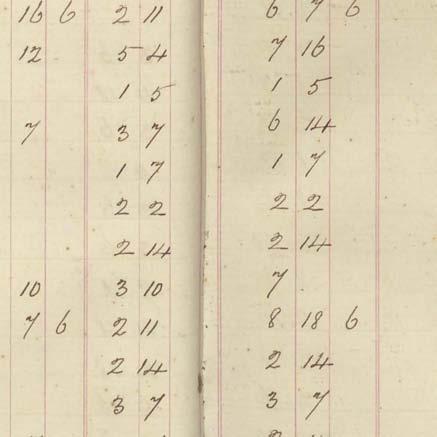 16 6 2 11 6 7 6
12 5 4 7 16
1 5 1 5
7 3 7 6 14
1 7 1 7
2 2 2 2
2 14 2 14
10 3 10 7
7 6 2 11 8 18 6
2 14 2 14
3 7 3 7